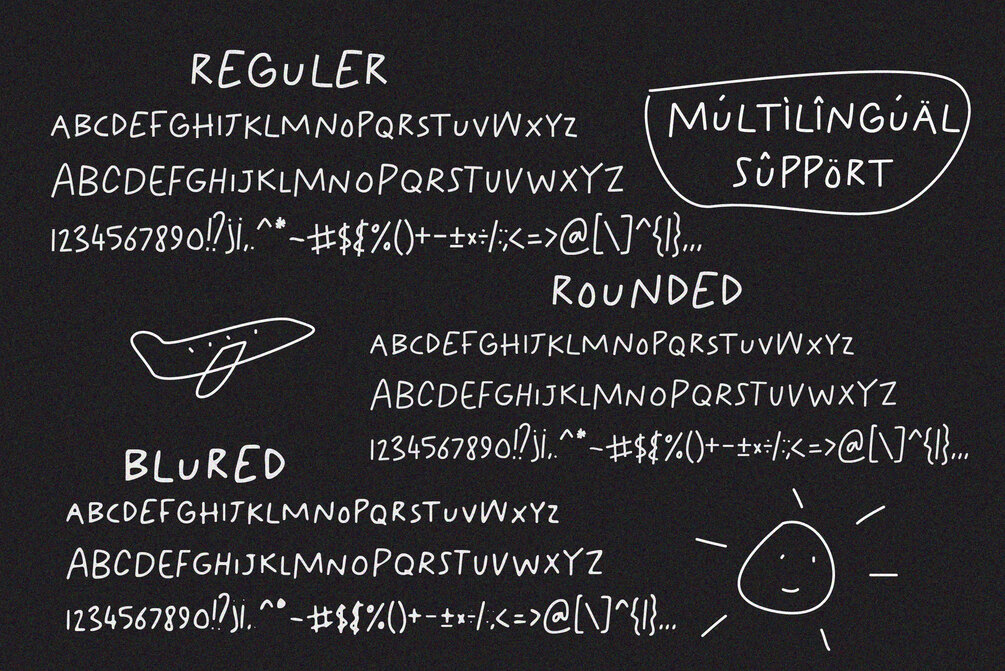 REGULER
ABCDEFGHIJKLMNOPQRSTUVWXYZ
ABCDEFGHIJKLMNOPQRSTUVWXYZ
MÚLTÌLÎNGÚÄL
SÛPPÖRT
ROUNDED
ABCDEFGHIJKLMNOPQRSTUVWXYZ
ABCDEFGHIJKLMNOPQRSTUVWXYZ
BLURED
ABCDEFGHIJKLMNOPQRSTUVWXYZ
ABCDEFGHIJKLMNOPQRSTUVWXYZ